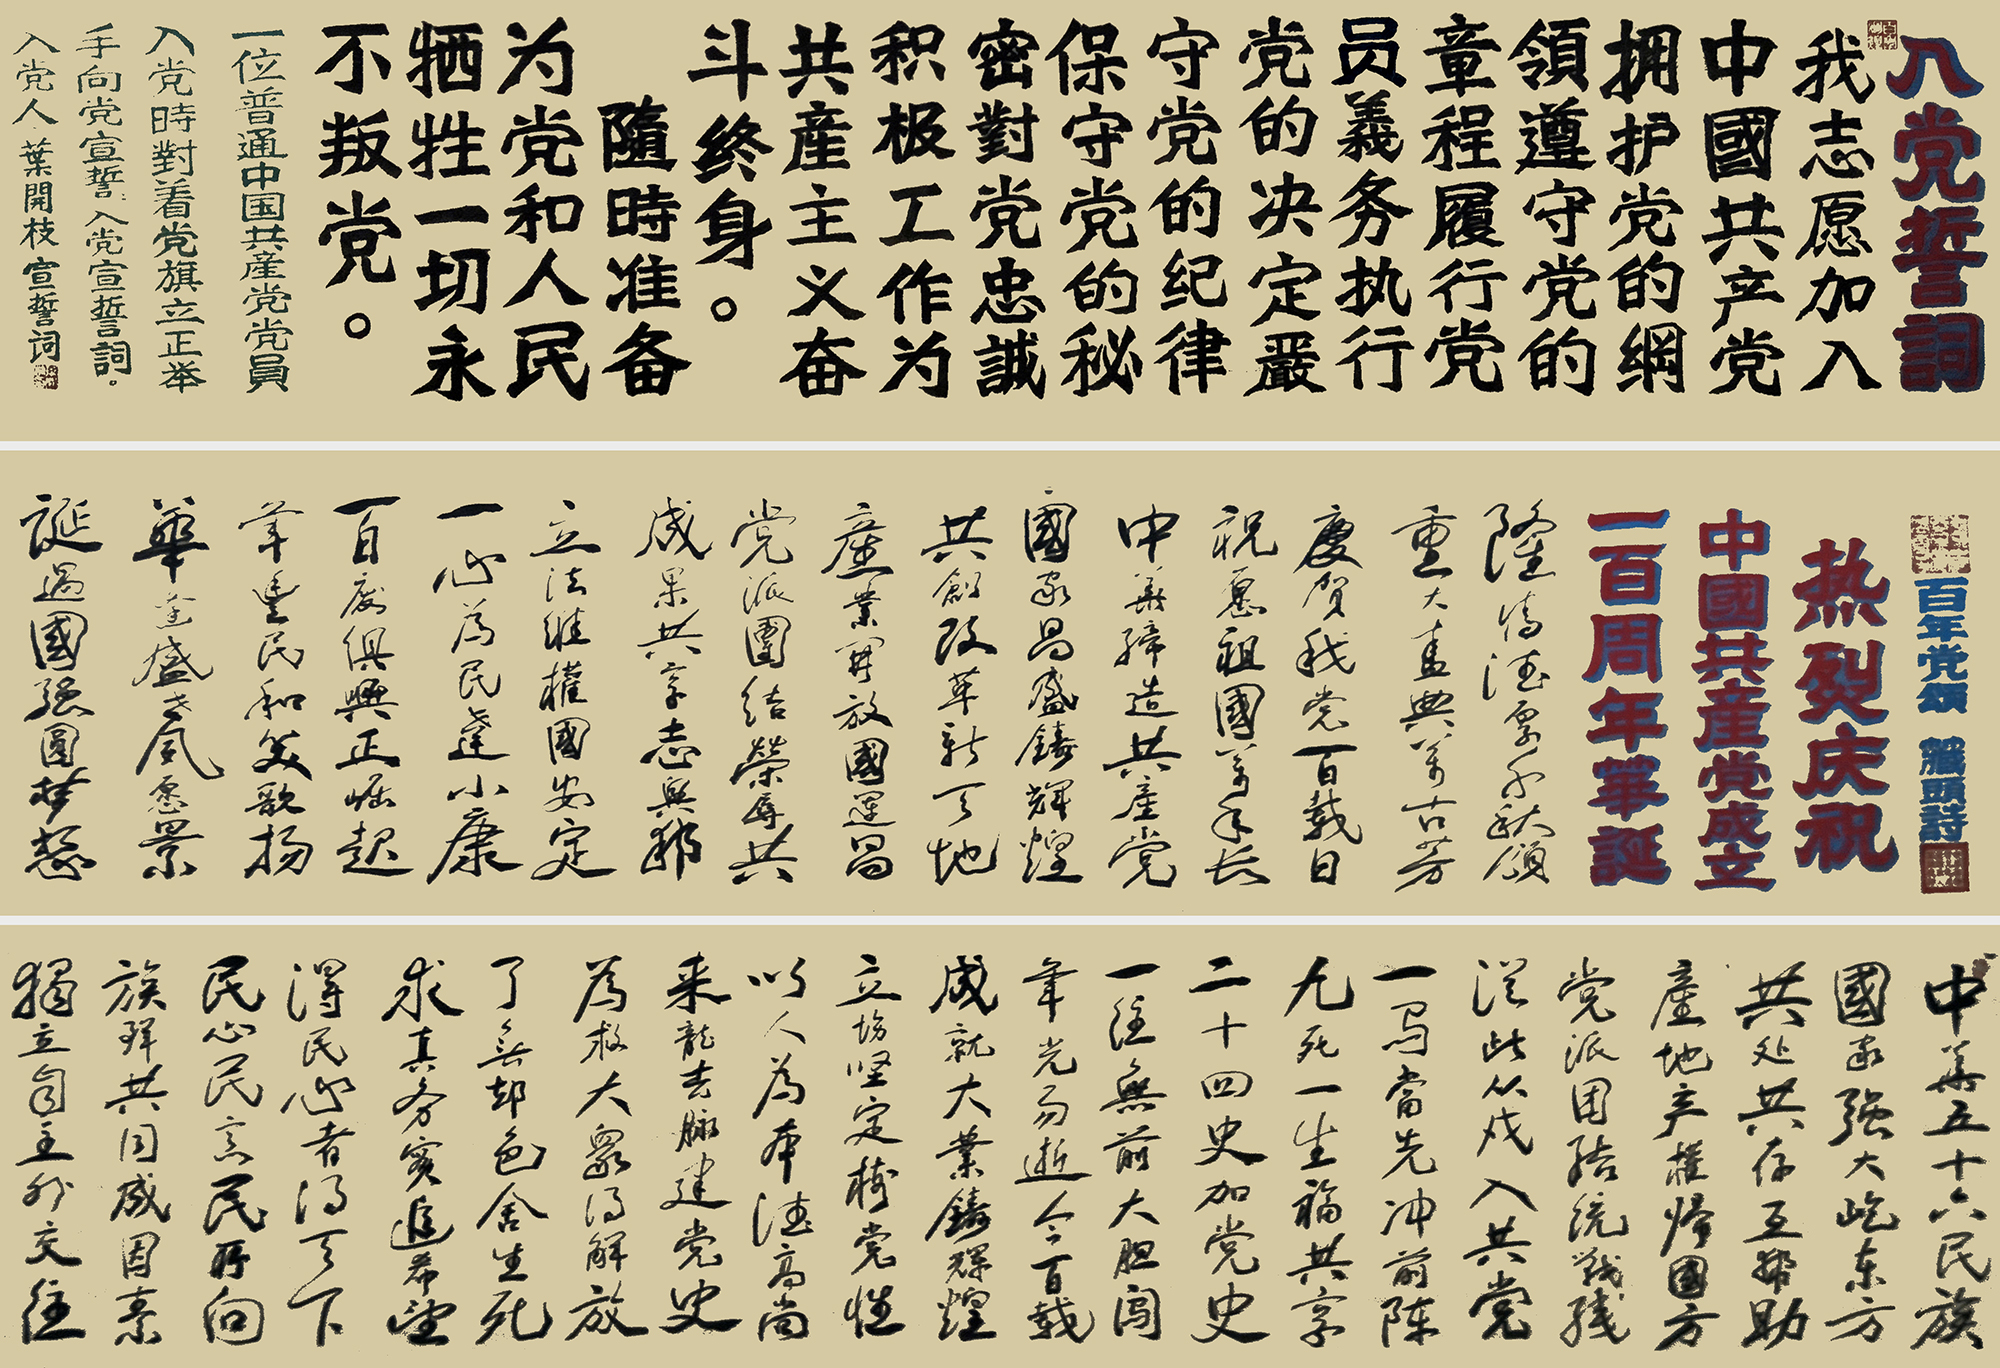 入党誓詞
我志愿加入
中國共产党
拥护党的綱
領遵守党的
章程履行党
员義务执行
党的决定嚴
守党的纪律
保守党的秘
密對党忠誠
积极工作为
共産主义奋
斗终身。
隨時准备
为党和人民
牺牲一切永
不叛党。
一位普通中国共産党党員
入党時對着党旗立正举
手向党宣誓入党宣誓詞。
入党人葉開枝宣誓词
百年党頌 藏頭詩
热烈庆祝
中國共産党成立
一百周年華誕
隆情德厚千秋頌
重大喜典萬古芳
慶賀我党百载日
祝愿祖國萬年长
中華締造共産党
國家昌盛鑄輝煌
共創改革新天地
産業開放國運昌
党派團结榮辱共
成果共享志興邦
立法維權國安定
一心為民達小康
百废俱興正崛起
年豊民和笑歌扬
華盛世風愿景
誕過國强圓梦想
中華五十六民族
國家强大屹东方
共处共存互帮助
産地产權歸國方
党派团结统战线
從此从戎入共党
一马當先冲前阵
九死一生福共享
二十四史加党史
一往無前大胆闯
年光易逝今百载
成就大業鑄輝煌
立場坚定樹党性
以人為本德高尚
来龍去脉建党史
為救大衆得解放
了無却色舍生死
求真务实追希望
得民心者得天下
民心民意民所向
族群共同因素
獨立自主外交往